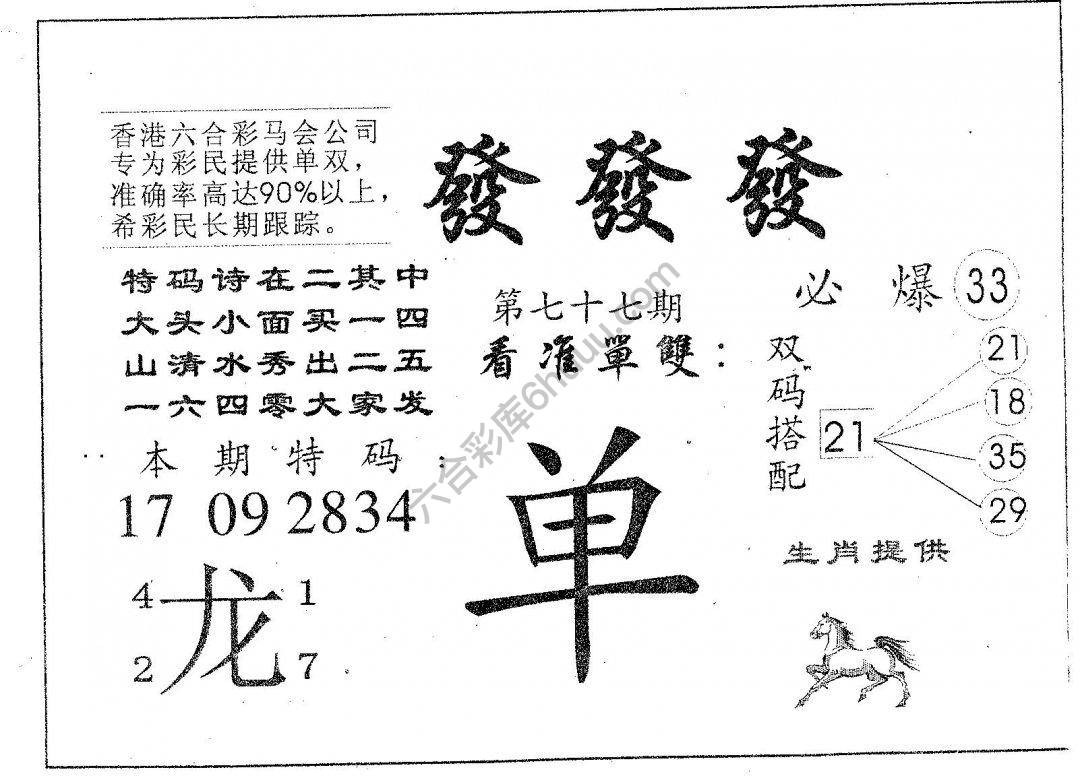 香港六合彩马会公司
专为彩民提供单双，
准确率高达90%以上，
希彩民长期跟踪。
發 發 發
特码诗在二其中
大头小面买一四
山清水秀出二五
一六四零大家发
第七十七期
看准單雙：
单
必 爆 33
双码搭配
21
21
18
35
29
本期特码：
17 09 2834
4 龙 1
2 7
生肖提供
六合彩库6huuu.com